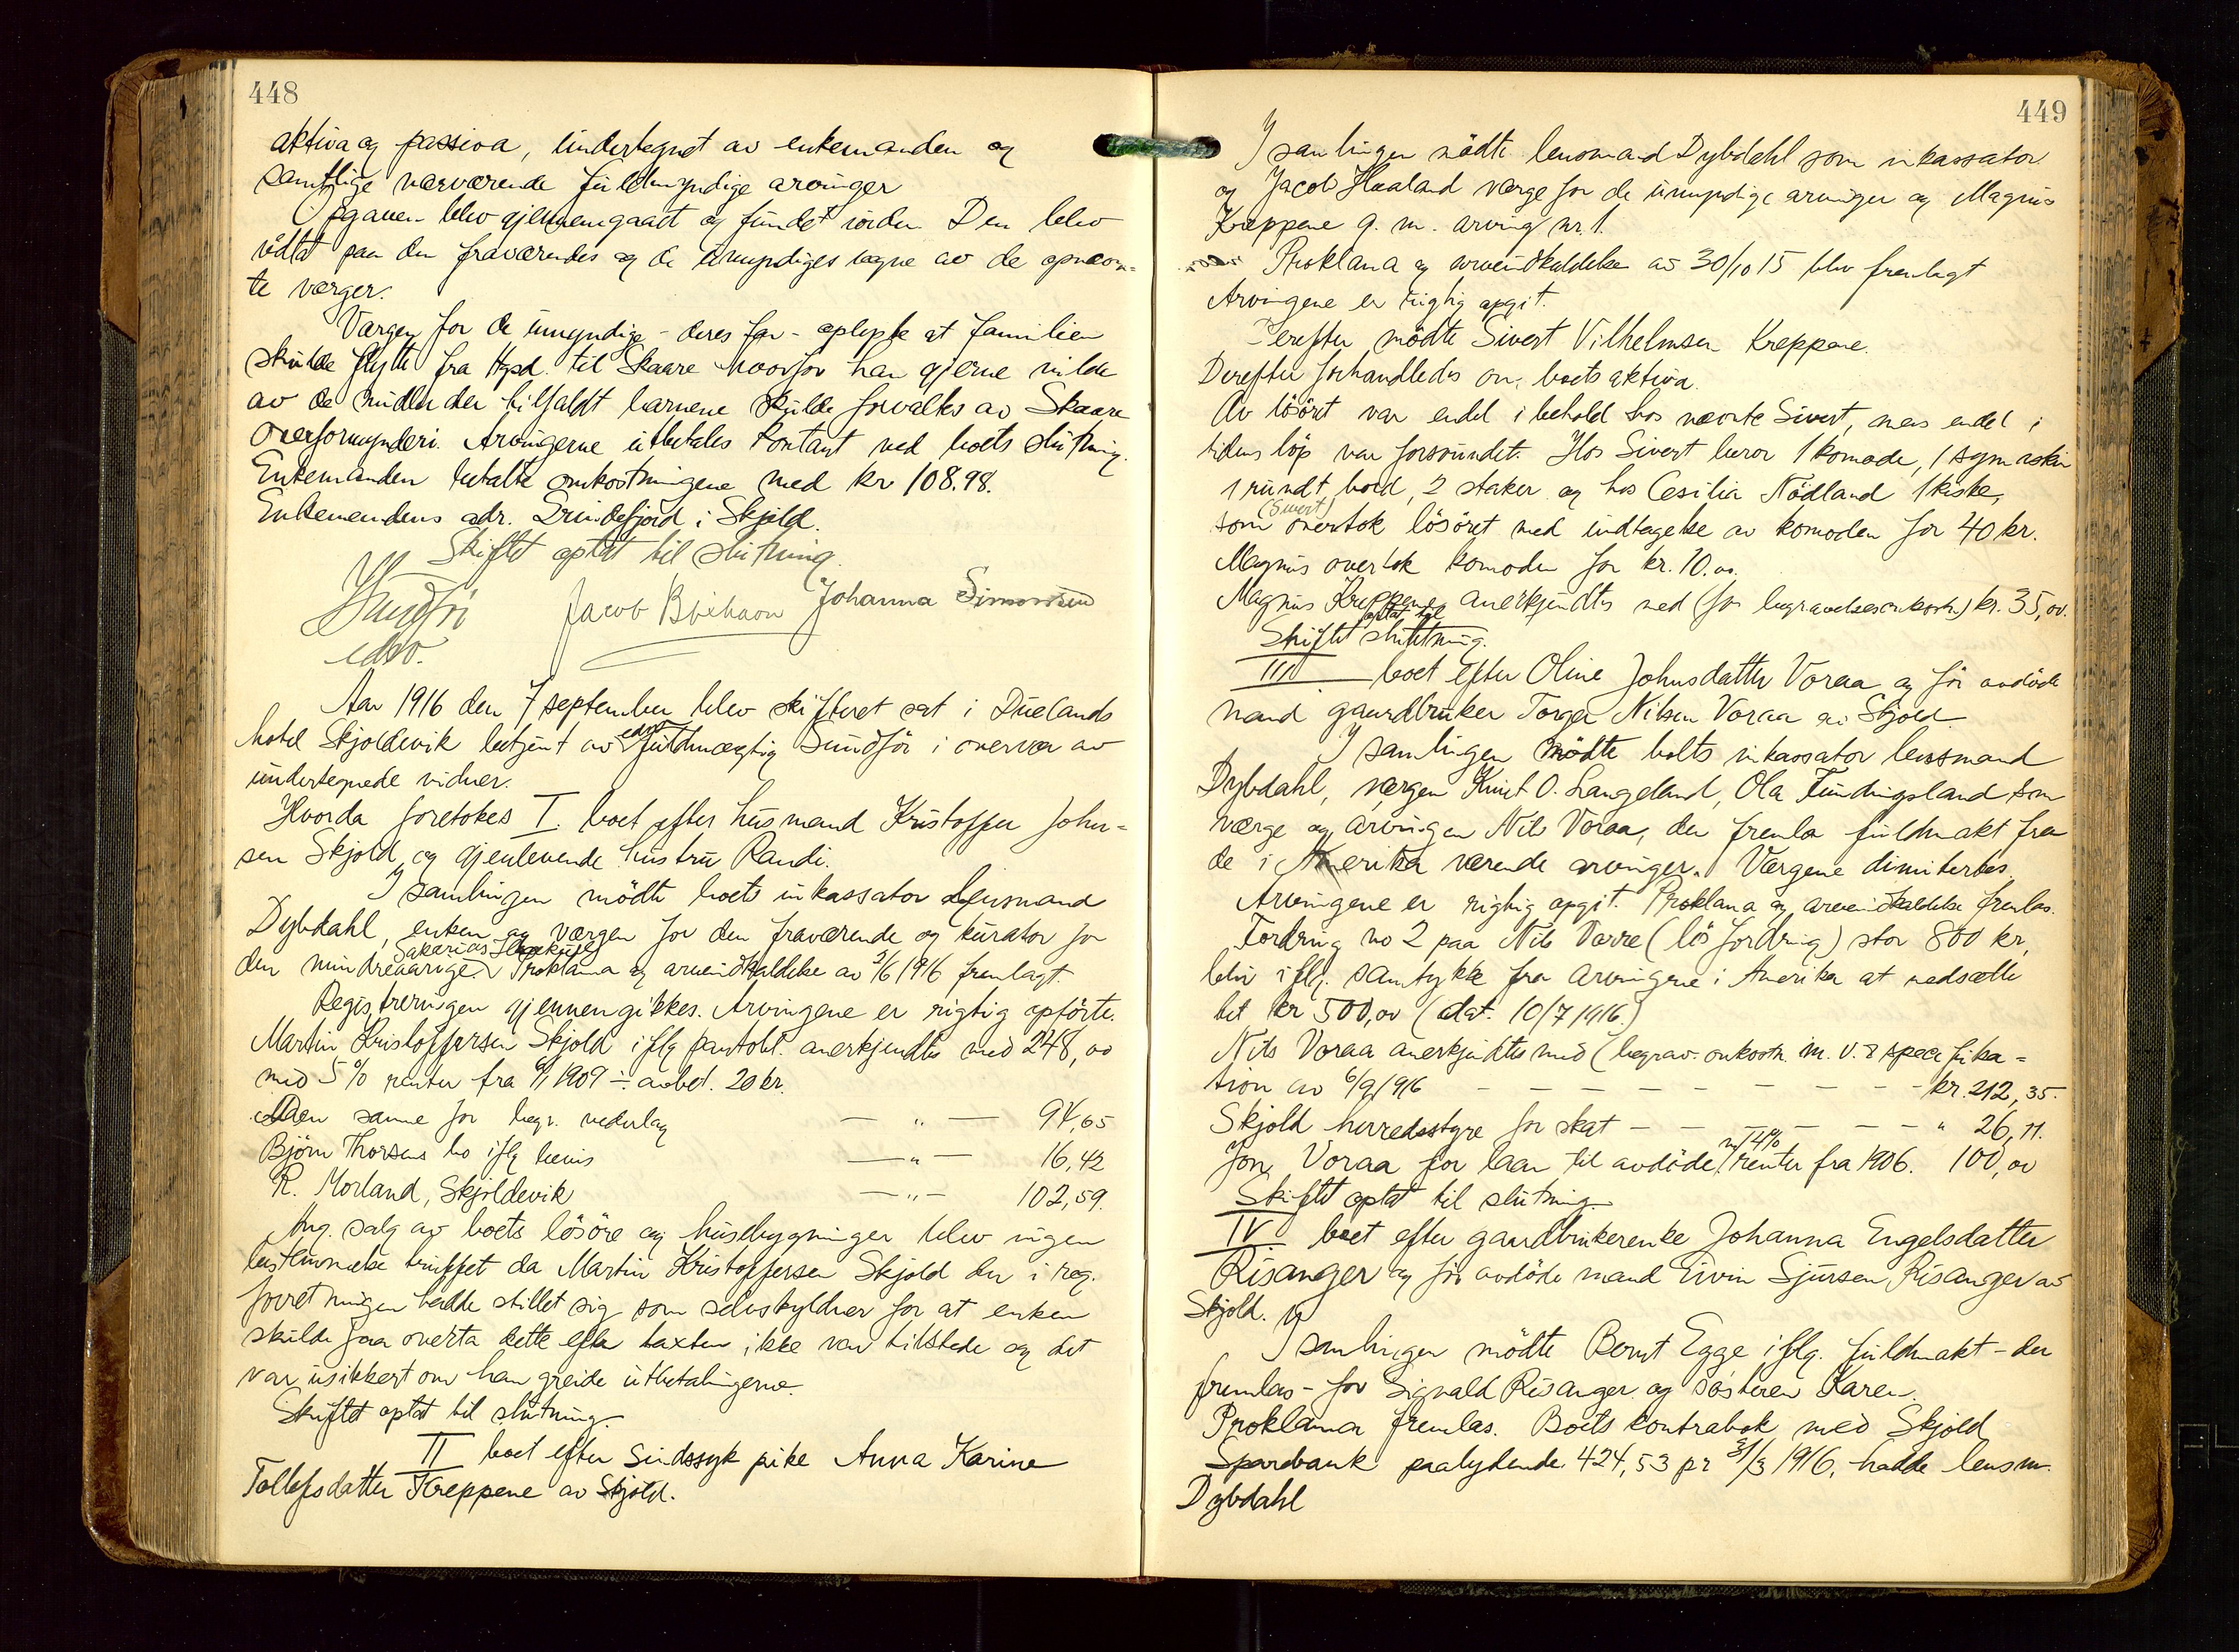 448
aktiva og passiva, undertegnet av enkemanden og
samtlige nærværende fuldmyndige arvinger
Opgaven blev gjennemgaadt og fundet iorden. Den blev
vedtat paa den fraværendes og de umyndiges vegne av de opnævn-
te værger.
Værgen for de umyndige - deres far - oplyste at familien
skulde flytte fra Hgsd. til Skaare hvorfor han gjerne vilde
av de midler der tilfaldt barnene skulde forvaltes av Skaare
overformynderi. Arvingerne utbetales kontant ved boets slutning.
Enkemanden betalte omkostningene med kr 108.98.
Enkemandens adr. Grindefjord i Skjold.
Skiftet optat til slutning.
Sundför Jacob Johanna Simonsen
edsv.
Aar 1916 den 7 september blev skifteret sat i Duelands
hotel Skjoldevik betjent av edsv. fuldmægtig Sundför i overvær av
undertegnede vidner.
Hvorda foretokes I. boet efter husmand Kristoffer John-
sen Skjold og gjenlevende hustru Randi.
I samlingen mödte boets inkassator Lensmand
Dybdahl, enken og værgen for den fraværende og kurator for
den mindreaarige Sakarias Proklama og arveindkaldelse av 2/6 1916 fremlagt.
Registreringen gjennemgikkes. Arvingene er rigtig opförte.
Martin Kristoffersen Skjold iflg pantobl. anerkjendtes med 248,00
med 5% renter fra 6/1 1909 ÷ avbet. 20 kr.
Den samme for begr. vederlag — " — 94,65
Björn Thorsens bo iflg bevis — " — 16,42
R. Morland, Skjoldevik — " — 102,59.
Ang. salg av boets lösöre og husebygninger blev ingen
bestemmelse truffet da Martin Kristoffersen Skjold der i reg.
forretningen hadde stillet sig som selvskyldner for at enken
skulde faa overta dette efter taxten ikke var tilstede og det
var usikkert om han greide utbetalingerne.
Skiftet optat til slutning.
II boet efter sindssyk pike Anna Karine
Tollefsdatter Kreppene av Skjold.
449
I samlingen mödte lensmand Dybdahl som inkassator
og Jacob Haaland værge for de umyndige arvinger og Magnus
Kreppene g. m. arving nr. 1.
Proklama og arveindkaldelse av 30/10 15 blev fremlagt
Arvingene er rigtig opgit.
Derefter mödte Sivert Vilhelmsen Kreppene.
Derefter forhandledes om boets aktiva.
Av lösöret var endel i behold hos nævnte Sivert, mens endel i
tidens löp var forsvundet. Hos Sivert beror 1 komode, 1 symaskin
1 rundt bord, 2 staker og hos Cesilia Nödland 1 kiste,
som (Sivert) overtok lösöret med undtagelse av komoden for 40 kr.
Magnus overtok komoden for kr. 10.00.
Magnus Kreppene anerkjendtes med (for begravelsesomkostn.) kr. 35,00.
Skiftet optat til slutning.
III boet efter Oline Johnsdatter Voraa og för avdöde
mand gaardbruker Torger Nilsen Voraa av Skjold
I samlingen mödte bolts inkassator lensmand
Dybdahl, værgen Knut O. Langeland, Ola Fundingsland som
værge og arvingen Nils Voraa, der fremla fuldmakt fra
de i Amerika værende arvinger. Værgene dimitertes.
Arvingene er rigtig opgit. Proklama og arveindkaldelse fremlas.
Fordring no 2 paa Nils Vorre (lös fordring) stor 800 kr,
blev iflg. samtykke fra arvingene i Amerika at nedsætte
til kr 500,00 (dat. 10/7 1916.)
Nils Voraa anerkjendtes med (begrav. omkostn. m. v. 2 specifika-
tion av 6/9 1916 — — — — — — — — — kr. 212,35.
Skjold herredsstyre for skat — — — — — — " 26,11.
Jone Voraa for laan til avdöde m/ 4% renter fra 1906. 100,00
Skiftet optat til slutning
IV boet efter gaardbrukerenke Johanna Engelsdatter
Risanger og för avdöde mand Eivin Sjursen Risanger av
Skjold.
I samlingen mödte Bernt Egge iflg. fuldmakt - der
fremlas - for Sigvald Risanger og sösteren Karen.
Proklama fremlas. Boets kontrabok med Skjold
Sparebank paalydende 424,53 pr 31/3 1916, hadde lensm.
Dybdahl